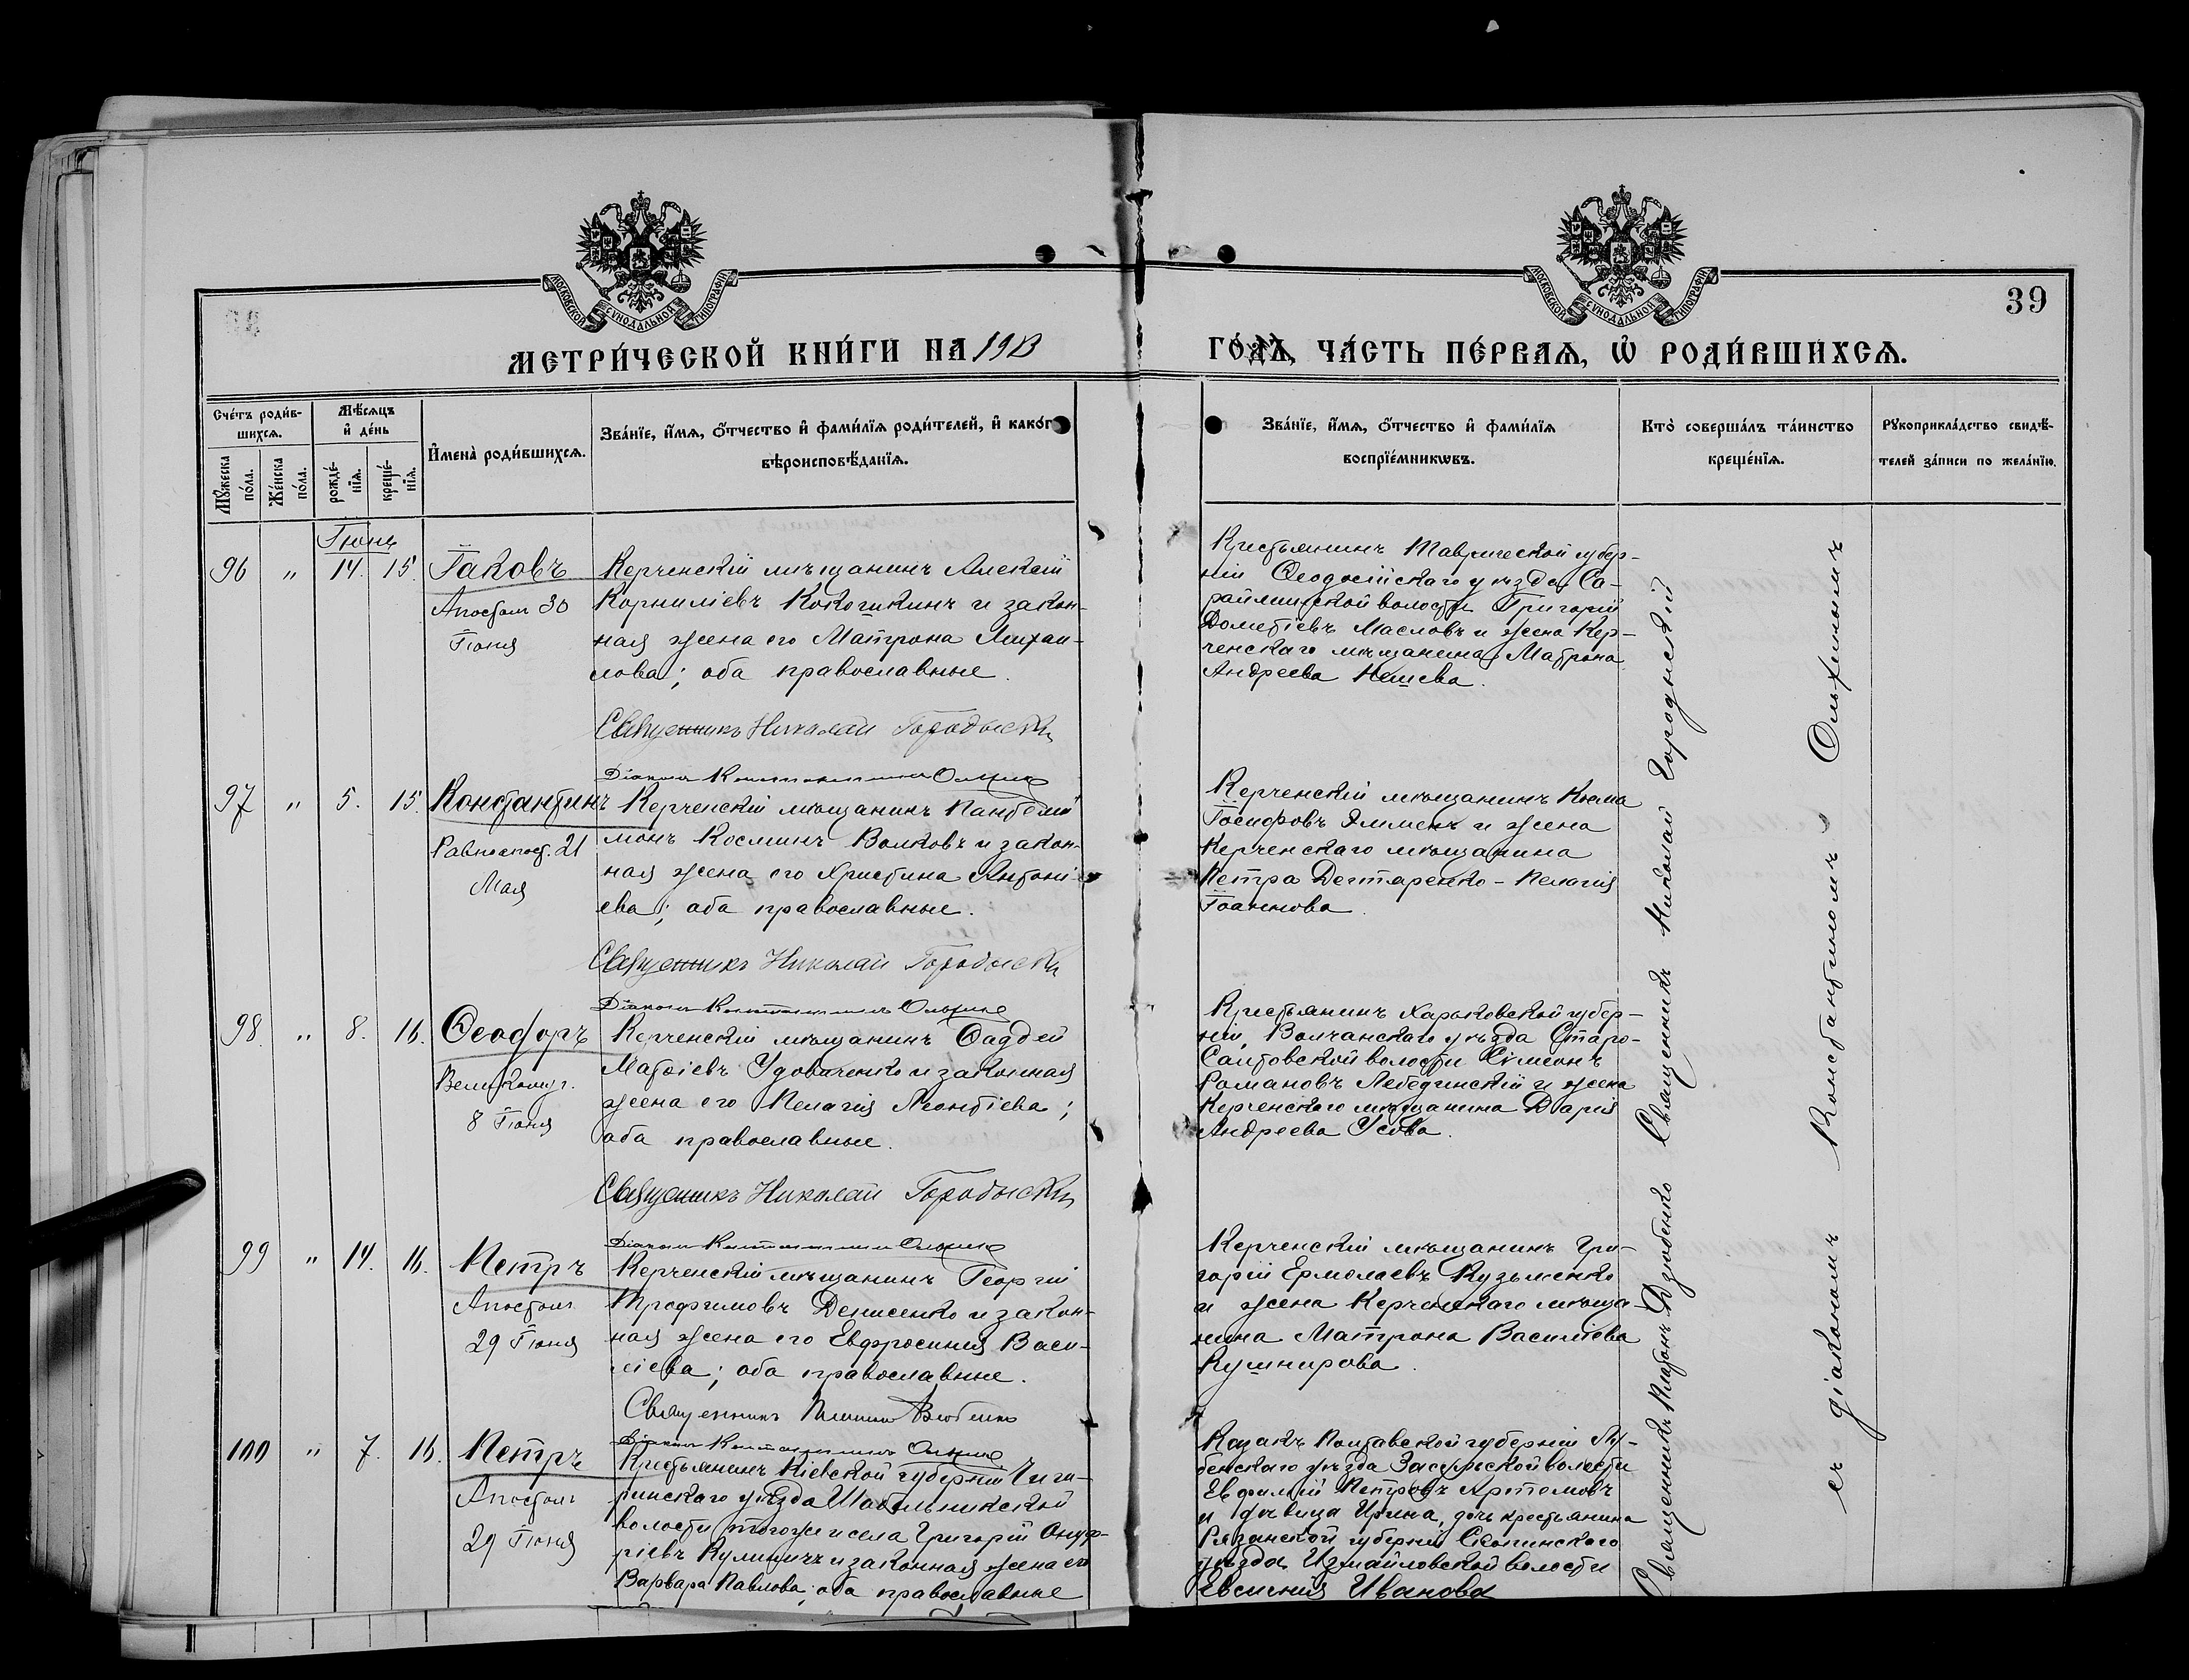 МОСКОВСКОЙ СѴНОДАЛЬНОЙ ТИПОГРАФІИ
МОСКОВСКОЙ СѴНОДАЛЬНОЙ ТИПОГРАФІИ
39
МЕТРИ́ЧЕСКОЙ КНИ́ГИ НА 1913 ГО́ДЪ, ЧА́СТЬ ПЕ́РВАЯ, Ѡ РОДИ́ВШИХСЯ.
Сче́тъ роди́в-
шихся.
Мѣ́сяцъ
и де́нь
Му́жеска
по́ла.
Же́нска
по́ла.
рожде́-
нїя.
креще́-
нїя.
И҆мена̀ роди́вшихся.
Зва́нїе, и҆́мя, ѻ҆́тчество и҆ фами́лїя роди́телей, и҆ како́гѡ
вѣроисповѣ́данїя.
Зва́нїе, и҆́мя, ѻ҆́тчество и҆ фами́лїя
воспрїе́мникѡвъ.
Кто̀ соверша́лъ та́инство
креще́нїя.
Рꙋкоприкла́дство свидѣ́-
телей за́писи по жела́нїю.
Іюнь
96 " 14. 15. Іаковъ
Апостол 30
Іюня
Керченскій мѣщанинъ Алексій
Корниліевъ Кокошкинъ и закон-
ная жена его Матрона Михаи-
лова; оба православные.
Священникъ Николай Городыскій
Діаконъ Константинъ Ольхинъ
Крестьянинъ Таврической губер-
ніи Ѳеодосійскаго уѣзда, Са-
райминской волости Григорій
Дометіевъ Масловъ и жена Кер-
ченскаго мѣщанина Матрона
Андреева Нешева.
97 " 5. 15. Константинъ
Равноапост. 21
Мая
Керченскій мѣщанинъ Пантелей
монъ Косминъ Волковъ и закон-
ная жена его Христина Антоні-
ева; оба православные.
Священникъ Николай Городыскій
Діаконъ Константинъ Ольхинъ
Керченскій мѣщанинъ Косма
Іосифовъ и жена
Керченскаго мѣщанина
Петра Дегтаренко - Пелагія
Іоаннова.
98. " 8. 16. Ѳеодоръ
Великомуч.
8 Іюня
Керченскій мѣщанинъ Ѳаддей
Матѳіевъ Удовиченко и законная
жена его Пелагія Леонтіева;
оба православные.
Священникъ Николай Городыскій
Діаконъ Константинъ Ольхинъ
Крестьянинъ Харьковской губер-
ніи, Волчанскаго уѣзда Старо-
Салтовской волости Симеонъ
Романовъ Лебединскій и жена
Керченскаго мѣщанина Дарія
Андреева Усова.
99 " 14. 16. Петръ
Апостолъ
29 Іюня
Керченскій мѣщанинъ Георгій
Трофимовъ Денисенко и закон-
ная жена его Евфросинія Васи-
ліева; оба православные.
Священникъ Платонъ Дзюбенко
Діаконъ Константинъ Ольхинъ
Керченскій мѣщанинъ Гри-
горій Ермолаевъ Кузьменко
и жена Керченскаго мѣща-
нина Матрона Василіева
Кушнирова.
100 " 7. 16. Петръ
Апостолъ
29 Іюня
Крестьянинъ Кіевской губерніи Чиги-
ринскаго уѣзда Шабельникской
волости того же и села Григорій Онуф-
ріевъ Кулиничъ и законная жена его
Варвара Павлова; оба православные
Козакъ Полтавской губерніи Лу-
бенскаго уѣзда Засульской волости
Евфимій Петровъ Артемовъ
и дѣвица Ирина, дочь крестьянина
Рязанской губерніи Скопинскаго
уѣзда, Измайловской волости
Евсигнія Иванова
Священникъ Платонъ Дзюбенко Священникъ Николай Городыскій
съ діакономъ Константиномъ Ольхинымъ